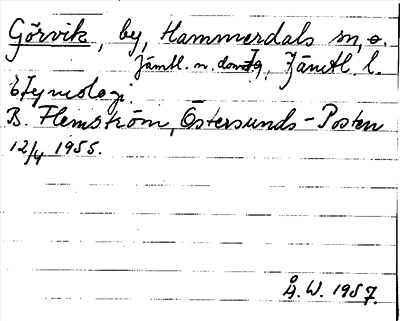 Görvik, by, Hammerdals sn, o.
Jämtl. n. doms, Jämtl. l.
Etymologi.
B. Flemström, Östersunds-Posten
12/4 1955.
Å. W. 1957.